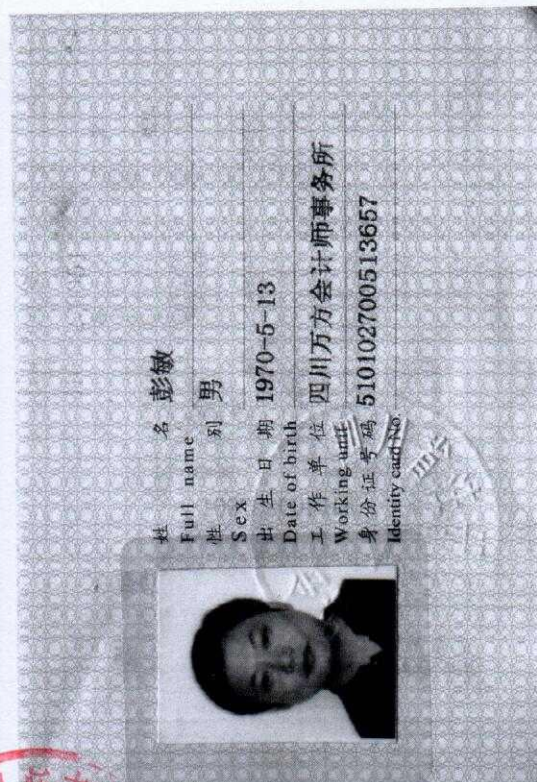 姓名 彭敏
Full name
性别 男
Sex
出生日期 1970-5-13
Date of birth
工作单位 四川万方会计师事务所
Working unit
身份证号码 510102700513657
Identity card No.